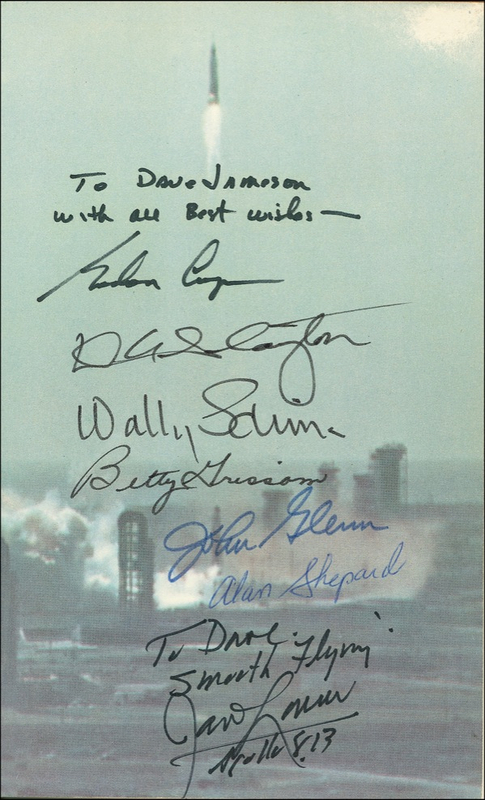 To Dave Jameson
with all Best wishes—
Gordon Cooper
D K Slayton
Wally Schirra
Betty Grissom
John Glenn
Alan Shepard
To Dave:
Smooth Flying!
James Lovell
Apollo 8, 13